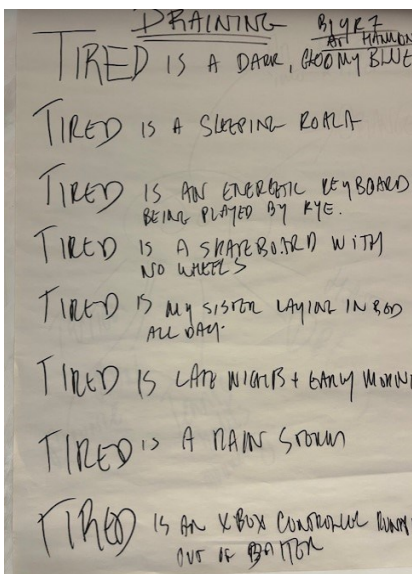 DRAINING BY YR7
AT HAMMON
TIRED IS A DARK, GLOOMY BLUE
TIRED IS A SLEEPING KOALA
TIRED IS AN ENERGETIC KEYBOARD
BEING PLAYED BY KYE.
TIRED IS A SKATEBOARD WITH
NO WHEELS
TIRED IS MY SISTER LAYING IN BED
ALL DAY.
TIRED IS LATE NIGHTS + EARLY MORNIN
TIRED IS A RAIN STORM
TIRED IS AN XBOX CONTROLLER RUNN
OUT OF BATTER